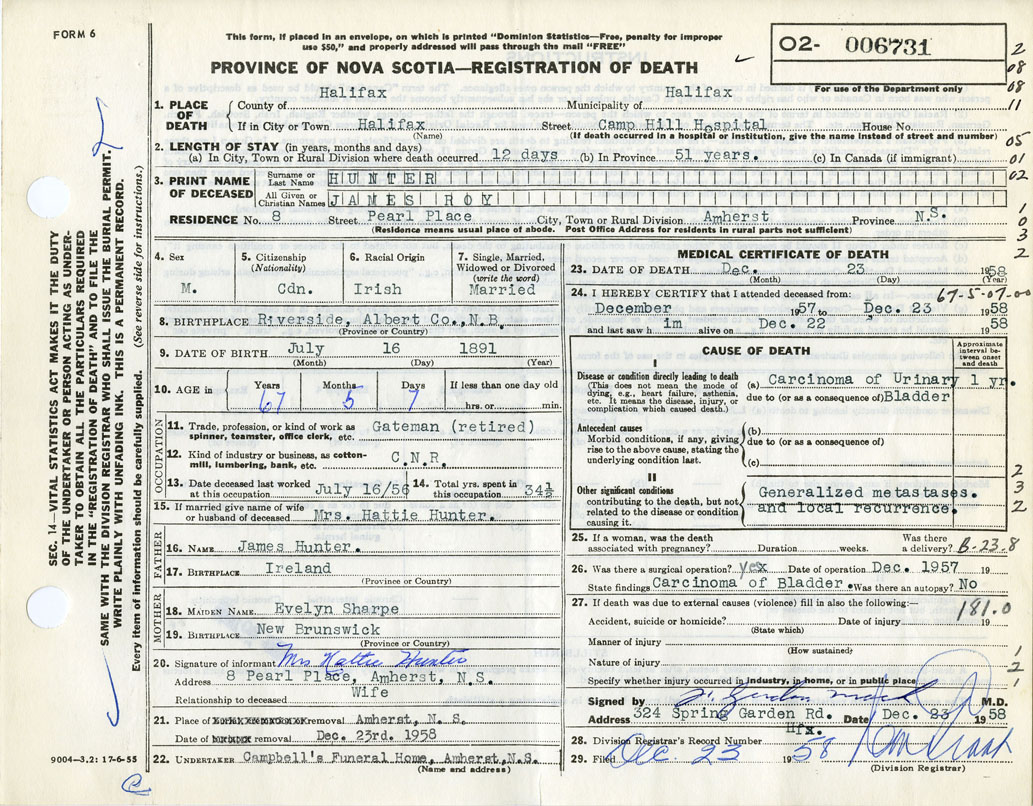 FORM 6
This form, if placed in an envelope, on which is printed "Dominion Statistics—Free, penalty for improper
use $50," and properly addressed will pass through the mail "FREE"
PROVINCE OF NOVA SCOTIA—REGISTRATION OF DEATH
O2- 006731
For use of the Department only
2
08
08
11
05
01
02
1
0
3
2
SEC. 14—VITAL STATISTICS ACT MAKES IT THE DUTY
OF THE UNDERTAKER OR PERSON ACTING AS UNDER-
TAKER TO OBTAIN ALL THE PARTICULARS REQUIRED
IN THE "REGISTRATION OF DEATH" AND TO FILE THE
SAME WITH THE DIVISION REGISTRAR WHO SHALL ISSUE THE BURIAL PERMIT.
WRITE PLAINLY WITH UNFADING INK. THIS IS A PERMANENT RECORD.
Every item of information should be carefully supplied. (See reverse side for instructions.)
1. PLACE OF DEATH
County of Halifax Municipality of Halifax
If in City or Town Halifax Street Camp Hill Hospital House No.
(Name) (If death occurred in a hospital or institution, give the name instead of street and number)
2. LENGTH OF STAY (in years, months and days)
(a) In City, Town or Rural Division where death occurred 12 days (b) In Province 51 years. (c) In Canada (if immigrant)
3. PRINT NAME OF DECEASED
Surname or Last Name HUNTER
All Given or Christian Names JAMES ROY
RESIDENCE No. 8 Street Pearl Place City, Town or Rural Division Amherst Province N.S.
(Residence means usual place of abode. Post Office Address for residents in rural parts not sufficient)
4. Sex
M.
5. Citizenship
(Nationality)
Cdn.
6. Racial Origin
Irish
7. Single, Married,
Widowed or Divorced
(write the word)
Married
8. BIRTHPLACE Riverside, Albert Co., N.B.
(Province or Country)
9. DATE OF BIRTH July 16 1891
(Month) (Day) (Year)
10. AGE in
Years Months Days If less than one day old
67 5 7 hrs. or min.
OCCUPATION
11. Trade, profession, or kind of work as Gateman (retired)
spinner, teamster, office clerk, etc.
12. Kind of industry or business, as cotton- C.N.R.
mill, lumbering, bank, etc.
13. Date deceased last worked at this occupation July 16/56
14. Total yrs. spent in this occupation 34½
15. If married give name of wife
or husband of deceased Mrs. Hattie Hunter.
FATHER
16. NAME James Hunter.
17. BIRTHPLACE Ireland
(Province or Country)
MOTHER
18. MAIDEN NAME Evelyn Sharpe
19. BIRTHPLACE New Brunswick
(Province or Country)
20. Signature of informant Mrs Hattie Hunter
Address 8 Pearl Place, Amherst, N.S.
Relationship to deceased Wife
21. Place of removal Amherst, N. S.
Date of removal Dec. 23rd. 1958
22. UNDERTAKER Campbell's Funeral Home, Amherst,N.S.
(Name and address)
9004—3.2: 17-6-55
MEDICAL CERTIFICATE OF DEATH
23. DATE OF DEATH Dec. 23 1958
(Month) (Day) (Year)
24. I HEREBY CERTIFY that I attended deceased from: 67-5-07-00
December 1957 to Dec. 23 1958
and last saw h im alive on Dec. 22 1958
CAUSE OF DEATH
Approximate
interval be-
tween onset
and death
I
Disease or condition directly leading to death
(This does not mean the mode of
dying, e.g., heart failure, asthenia,
etc. It means the disease, injury, or
complication which caused death.)
(a) Carcinoma of Urinary 1 yr.
due to (or as a consequence of) Bladder
Antecedent causes
Morbid conditions, if any, giving
rise to the above cause, stating the
underlying condition last.
(b)
due to (or as a consequence of)
(c)
II
Other significant conditions
contributing to the death, but not
related to the disease or condition
causing it.
Generalized metastases.
and local recurrence.
2
3
2
25. If a woman, was the death Was there
associated with pregnancy? Duration weeks. a delivery? B-23.8
26. Was there a surgical operation? yex Date of operation Dec. 1957 19
State findings Carcinoma of Bladder. Was there an autopsy? No
27. If death was due to external causes (violence) fill in also the following:—
181.0
Accident, suicide or homicide? Date of injury 19
(State which)
Manner of injury
(How sustained)
1
Nature of injury
2
Specify whether injury occurred in industry, in home, or in public place
1
Signed by M.D.
Address 324 Spring Garden Rd. Date Dec. 23 1958
Hfx.
28. Division Registrar's Record Number
29. Filed Dec 23 1958
(Division Registrar)